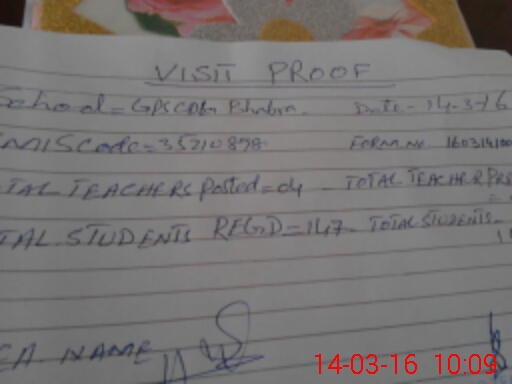 VISIT PROOF
School = GPS Bhabra. Date - 14-3-16
EMIS Code = 35210898 FORM No. 160314100
TOTAL TEACHERS Posted = 04 - TOTAL TEACHER PRE
TOTAL STUDENTS REGD = 147 - TOTAL STUDENTS -
NAME
14-03-16 10:09